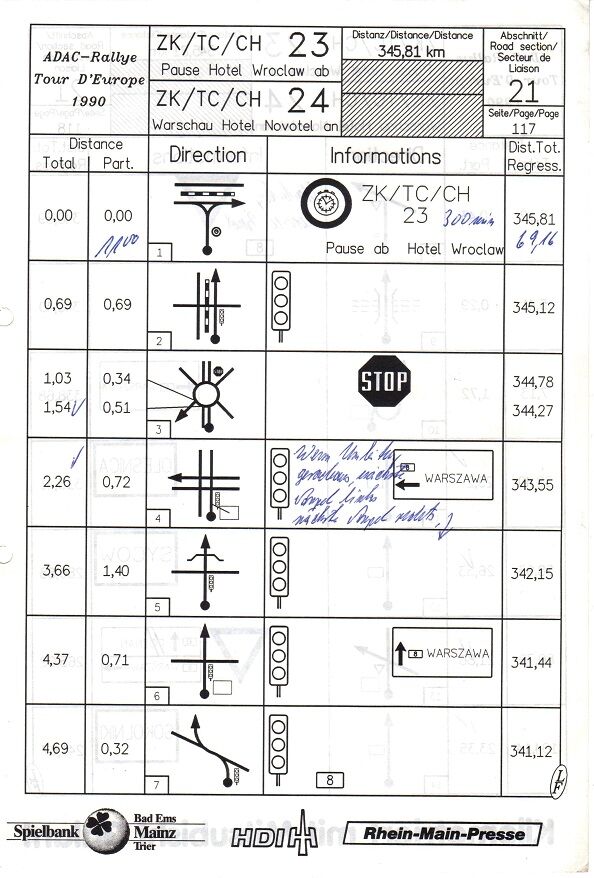 ADAC-Rallye
Tour D'Europe
1990
ZK/TC/CH 23
Pause Hotel Wroclaw ab
ZK/TC/CH 24
Warschau Hotel Novotel an
Distanz/Rheine/Distance
345,81 km
Abschnitt/
Road section/
Secteur de
Liaison
21
Seite/Page/Page
117
Distance
Total Part.
Direction
Informations
Dist.Tot.
Regress.
0,00 0,00
11 00
1
ZK/TC/CH
23 300 min
Pause ab Hotel Wroclaw
345,81
69,16
0,69 0,69
2
345,12
1,03 0,34
1,54 0,51
3
STOP
344,78
344,27
2,26 0,72
4
links
nächste
WARSZAWA
343,55
3,66 1,40
5
342,15
4,37 0,71
6
8 WARSZAWA
341,44
4,69 0,32
7
8
341,12
Spielbank
Bad Ems
Mainz
Trier
HDI
Rhein-Main-Presse